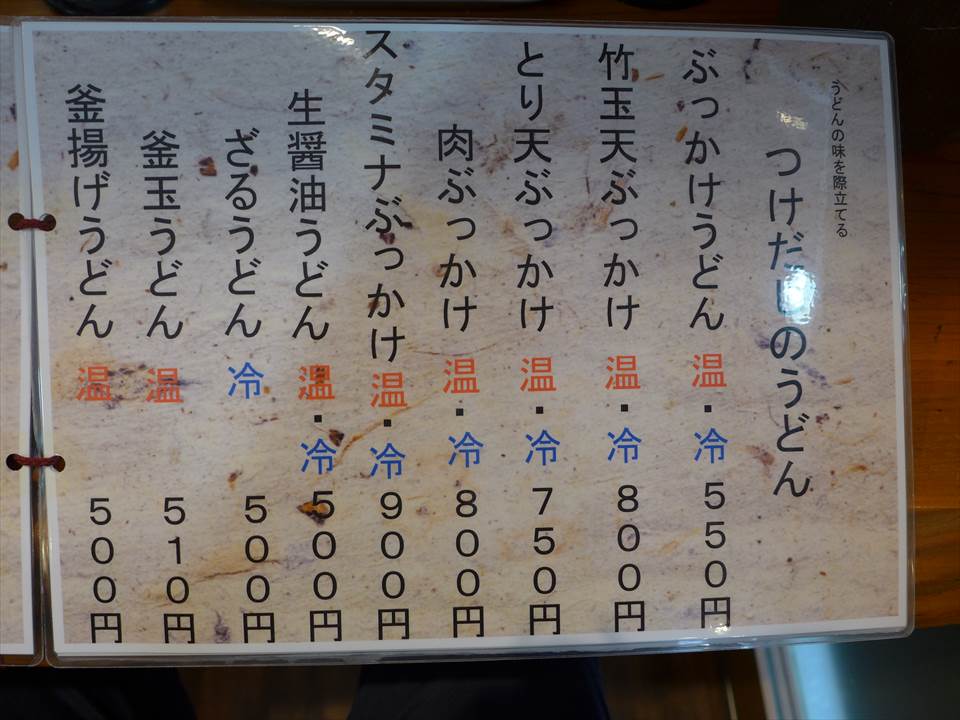 うどんの味を際立てる
つけだしのうどん
ぶっかけうどん 温・冷 550円
竹玉天ぶっかけ 温・冷 800円
とり天ぶっかけ 温・冷 750円
肉ぶっかけ 温・冷 800円
スタミナぶっかけ 温・冷 900円
生醤油うどん 温・冷 500円
ざるうどん 冷 500円
釜玉うどん 温 510円
釜揚げうどん 温 500円